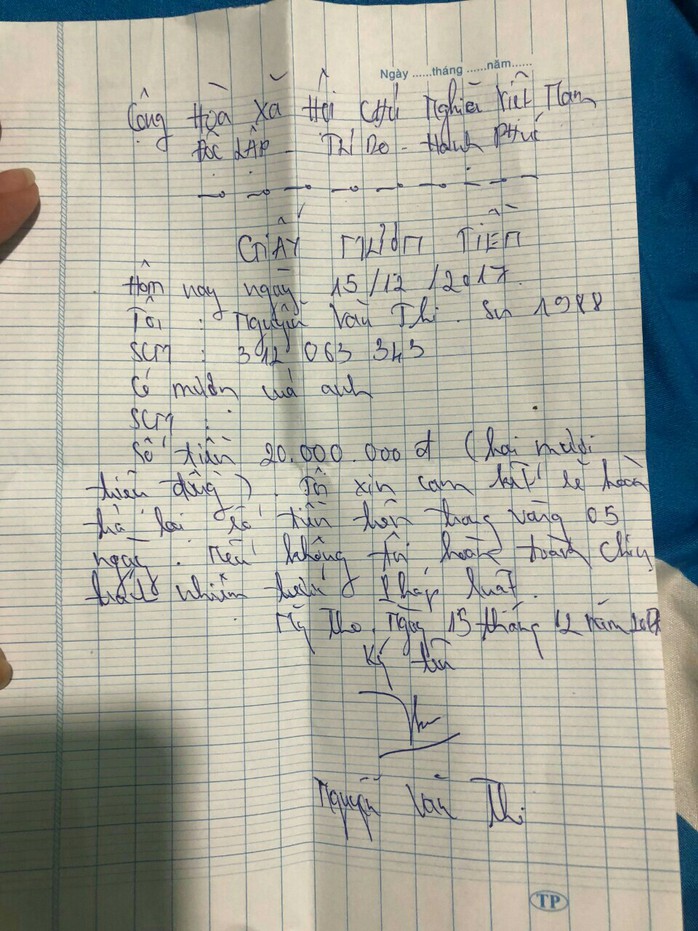 Ngày ......tháng ......năm......
Cộng Hòa Xã Hội Chủ Nghĩa Việt Nam
Độc Lập - Tự Do - Hạnh Phúc
GIẤY MƯỢN TIỀN
Hôm nay ngày 15/12/2017.
Tôi : Nguyễn Văn Thi. Sn 1988
SCM : 312 063 343
Có mượn của anh
SCM :
Số tiền 20.000.000đ (hai mươi
triệu đồng). Tôi xin cam kết sẽ hoàn
trả lại số tiền trên trong vòng 05
ngày. Nếu không tôi hoàn toàn chịu
trách nhiệm trước pháp luật.
Mỹ Tho, Ngày 15 tháng 12 năm 2017
Ký tên
Nguyễn Văn Thi
TP